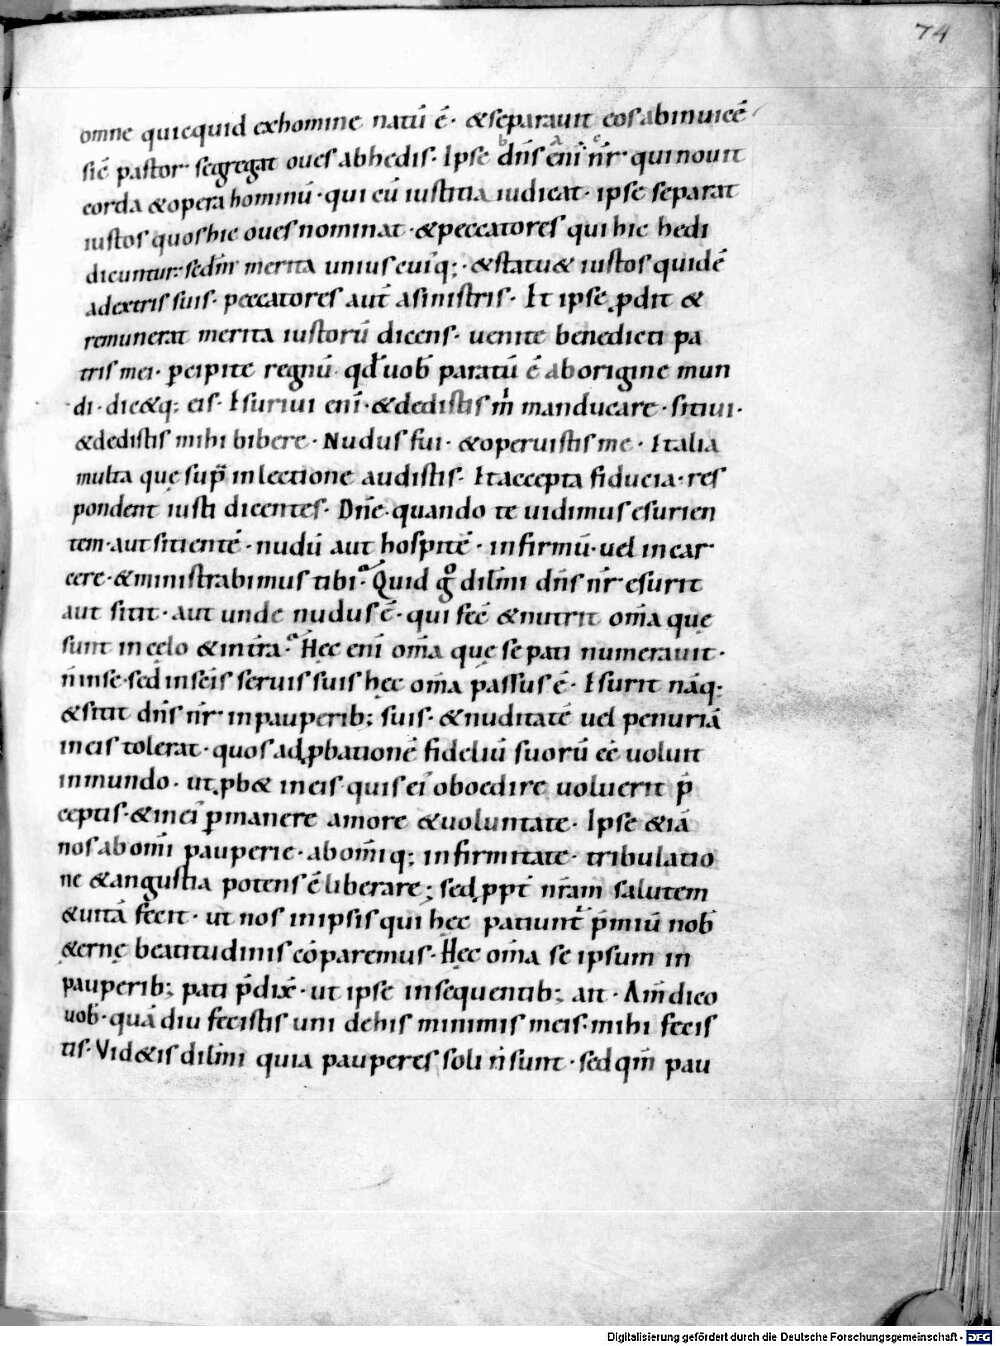 74
omne quicquid exhomine natū ē· &separauit eos abinuicē
sic̄ pastor segregat oues abhedis· Ipse dn̄s eni nr̄ qui nouit
corda &opera hominū· qui cū iustitia iudicat· ipse separat
iustos quos hic oues nominat· &peccatores qui hic hedi
dicuntur· sedm̄ merita uniuscuiq;· &statu& iustos quidē
adextris suis· peccatores aut̄ asinistris· Et ipse ꝓdit &
remunerat merita iustorū dicens· uenite benedicti pa
tris mei· ꝑcipite regnū qđ uob̄ paratū ē aborigine mun
di· dic&q; eis· Esuriui eni· &dedistis m̄ manducare· sitiui·
&dedistis mihi bibere· Nudus fui· &operuistis me· Et alia
multa quę sup̄ inlectione audistis· Et accepta fiducia· res
pondent iusti dicentes· Dn̄e· quando te uidimus esurien
tem· aut sitientē· nudū aut hospitē· infirmū· uel incar
cere· &ministrabimus tibi· Quid gͦ dilm̄i dn̄s nr̄ esurit
aut sitit· aut unde nudus ē· qui fec̄ &nutrit om̄a quę
sunt incęlo &intr̄a· Hęc eni om̄a quę se pati numerauit·
n̄ inse· sed insc̄is seruis suis hęc om̄a passus ē· Esurit nāq;
&sitit dn̄s nr̄ inpauperib; suis· &nuditatē uel penuriā
ineis tolerat· quos adꝓbationē fideliū suorū eē uoluit
inmundo· utꝓb& ineis· quis ei oboedire uoluerit p̄
ceptis· &inei ꝑmanere amore &uoluntate· Ipse &iā
nos abom̄i pauperie· abom̄iq; infirmitate· tribulatio
ne &angustia potens ē liberare; sed ꝓpt̄ nr̄am salutem
&uitā fecit· ut nos inipsis qui hęc patiunt̄ p̄miū nob̄
&ernę beatitudinis cōparemus· Hęc om̄a se ipsum in
pauperib; pati p̄dix̄· ut ipse insequentib; ait· Am̄ dico
uob̄· quādiu fecistis uni dehis minimis meis· mihi fecis
tis· Vid&is dilm̄i quia pauperes soli n̄ sunt· sed qm̄ pau
Digitalisierung gefördert durch die Deutsche Forschungsgemeinschaft - DFG